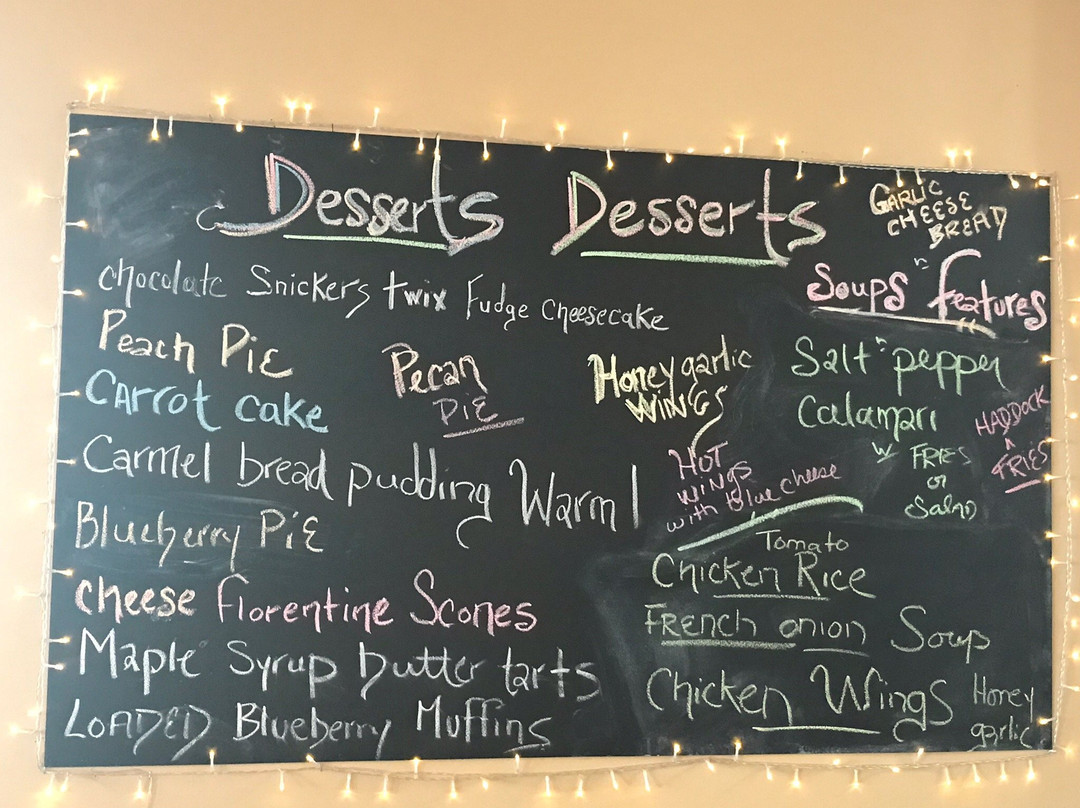 Desserts Desserts
chocolate Snickers twix Fudge Cheesecake
Peach Pie
Pecan
PiE
CARROT cake
Carmel bread pudding Warm!
Blueberry PiE
cheese Florentine Scones
Maple Syrup butter tarts
LOADED Blueberry Muffins
GARLIC
CHEESE
BREAD
Soups "n" features
Honey garlic
WINGS
HOT
WINGS
with blue cheese
Salt 'n' pepper
Calamari
w FRIES
or
Salad
HADDOCK
FRIES
Tomato
Chicken Rice
French onion Soup
Chicken Wings Honey
garlic